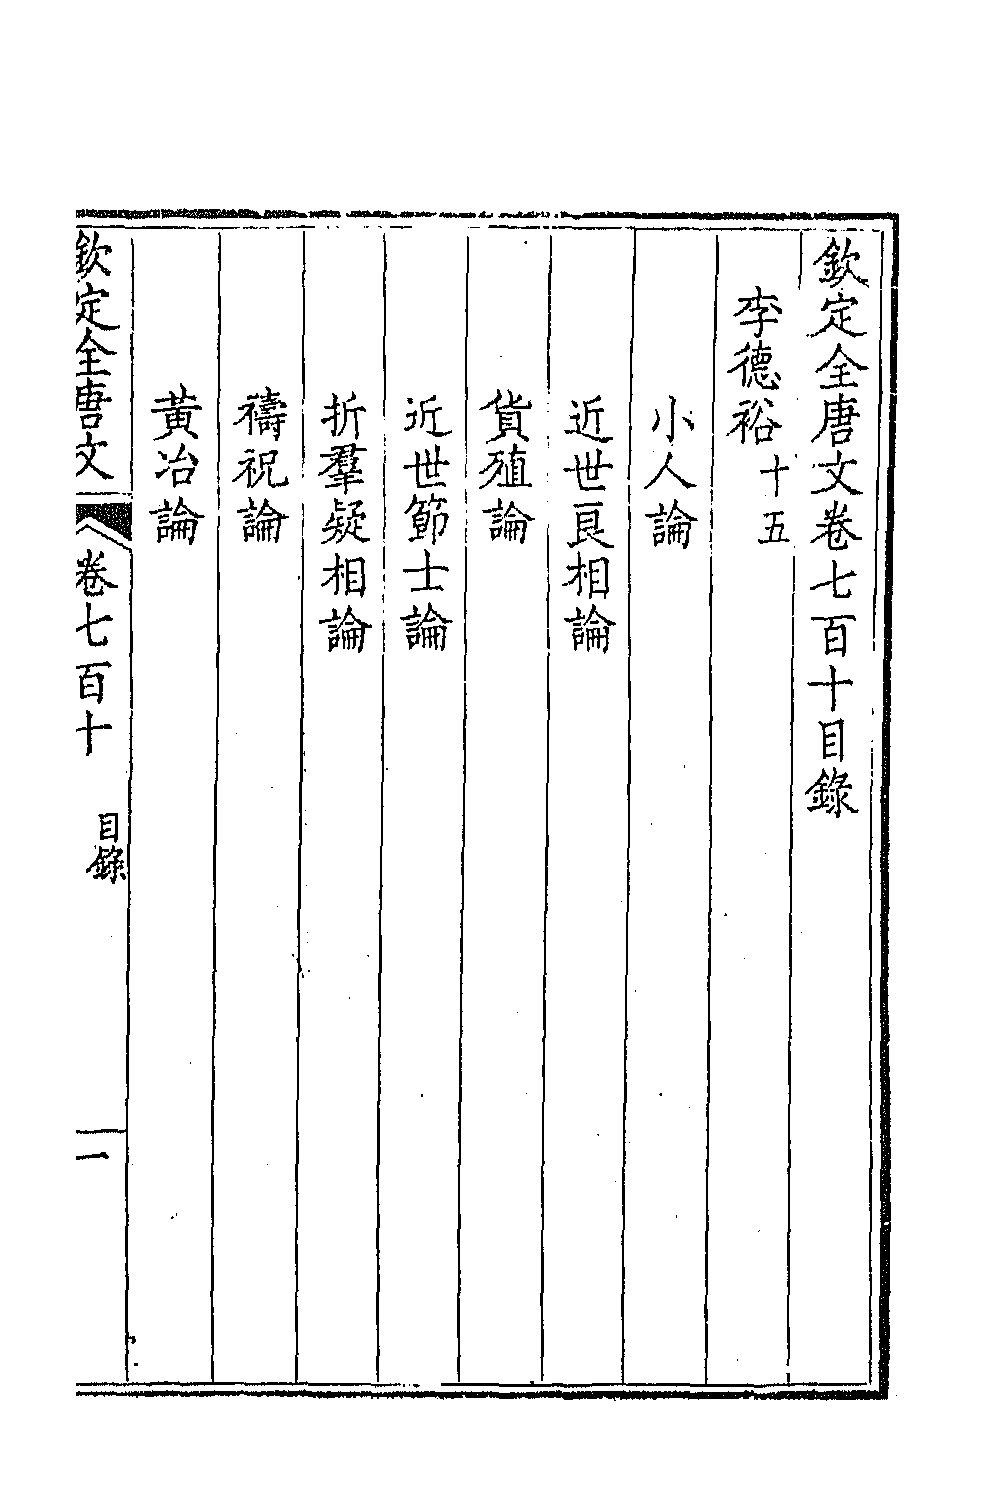 欽定全唐文卷七百十目錄
李德裕十五
小人論
近世良相論
貨殖論
近世節士論
折羣疑相論
禱祝論
黃冶論
欽定全唐文 卷七百十 目錄 一